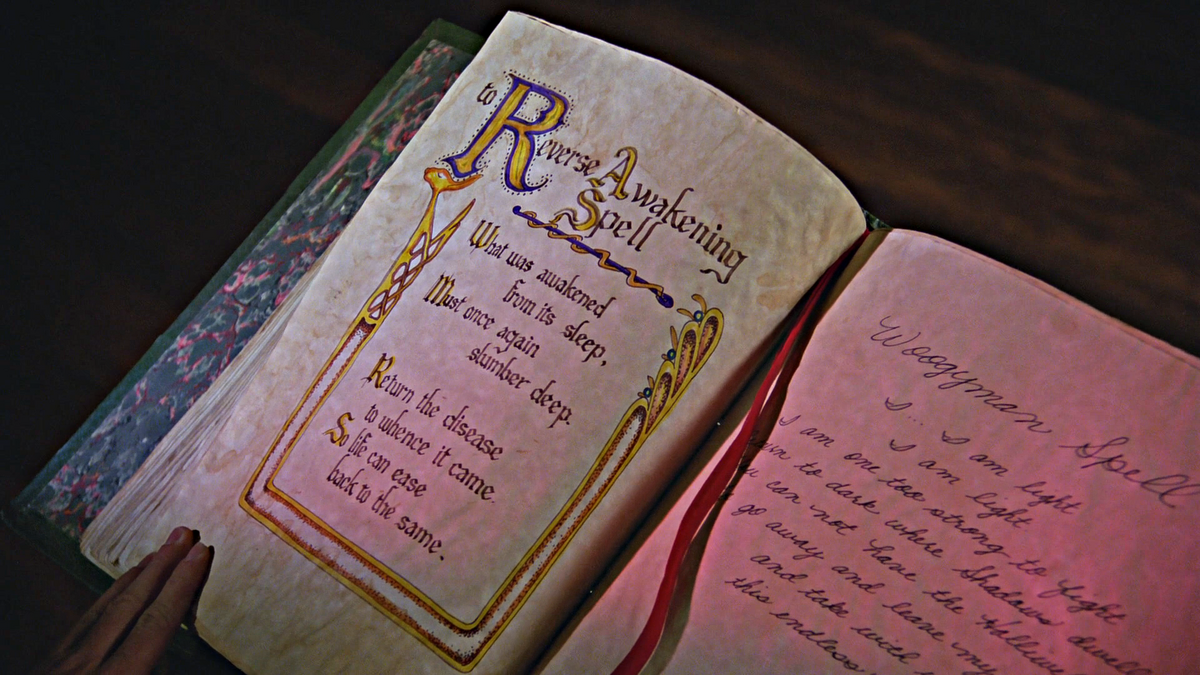 to Reverse Awakening
Spell
What was awakened
from its sleep,
Must once again
slumber deep.
Return the disease
to whence it came.
So life can ease
back to the same.
Woogyman Spell
I... I am
I am light
I am one too strong to fight
to dark where shadows dwell
can not have the Halliwe
go away and leave my
and take with
this endless